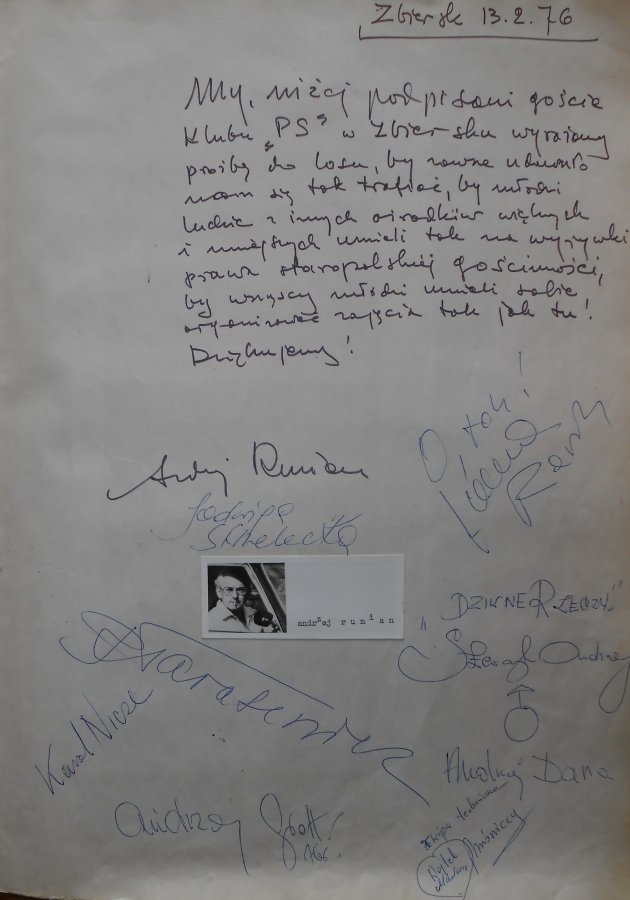 Zbiersk 13.2.76
My, niżej podpisani goście
Klubu „PS” w Zbiersku wyrażamy
prośbę do losu, by zawsze udawało
nam się tak trafiać, by młodzi
ludzie z innych ośrodków większych
i mniejszych umieli tak na wyrywki
prawa staropolskiej gościnności,
by wszyscy młodzi umieli sobie
organizować zajęcia tak jak tu!
Dziękujemy!
O tak!
Andrzej Rumian
Jadwiga
Strzelecka
andrzej rumian
"DZIWNE RZECZY"
Andrzej
Karol Nicze
Dana
Andrzej
Ekipa techniczna